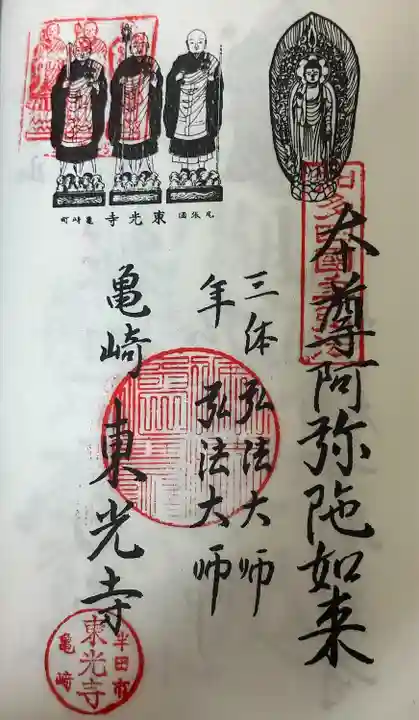 本尊阿弥陀如来
三体 弘法大師
年 弘法大師
亀崎 東光寺
尾張国 東光寺 亀崎町
半田市
東光寺
亀崎